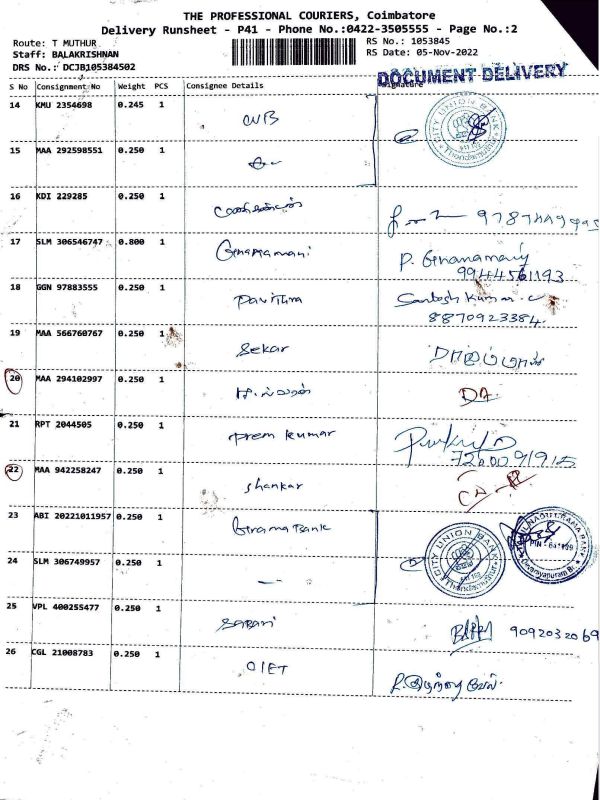 THE PROFESSIONAL COURIERS, Coimbatore
Delivery Runsheet - P41 - Phone No.:0422-3505555 - Page No.:2
Route: T MUTHUR
RS No.: 1053845
Staff: BALAKRISHNAN
RS Date: 05-Nov-2022
DRS No.: DCJB105384502
DOCUMENT DELIVERY
S No Consignment No Weight PCS Consignee Details Signature
14 KMU 2354698 0.245 1 CUB
CITY UNION BANK
15 MAA 292598551 0.250 1
16 KDI 229285 0.250 1
17 SLM 306546747 0.800 1 Gnanamani P. Gnanamani
9944561193
18 GGN 97883555 0.250 1 Pavithra Santosh Kumar
8870923384
19 MAA 566760767 0.250 1 Sekar
20 MAA 294102997 0.250 1 DA
21 RPT 2044505 0.250 1 Prem kumar
22 MAA 942258247 0.250 1 Shankar
23 ABI 20221011957 0.250 1 Grama Bank
CITY UNION BANK
24 SLM 306749957 0.250 1
25 VPL 400255477 0.250 1 Sabari 9092032069
26 CGL 21008783 0.250 1 OIET